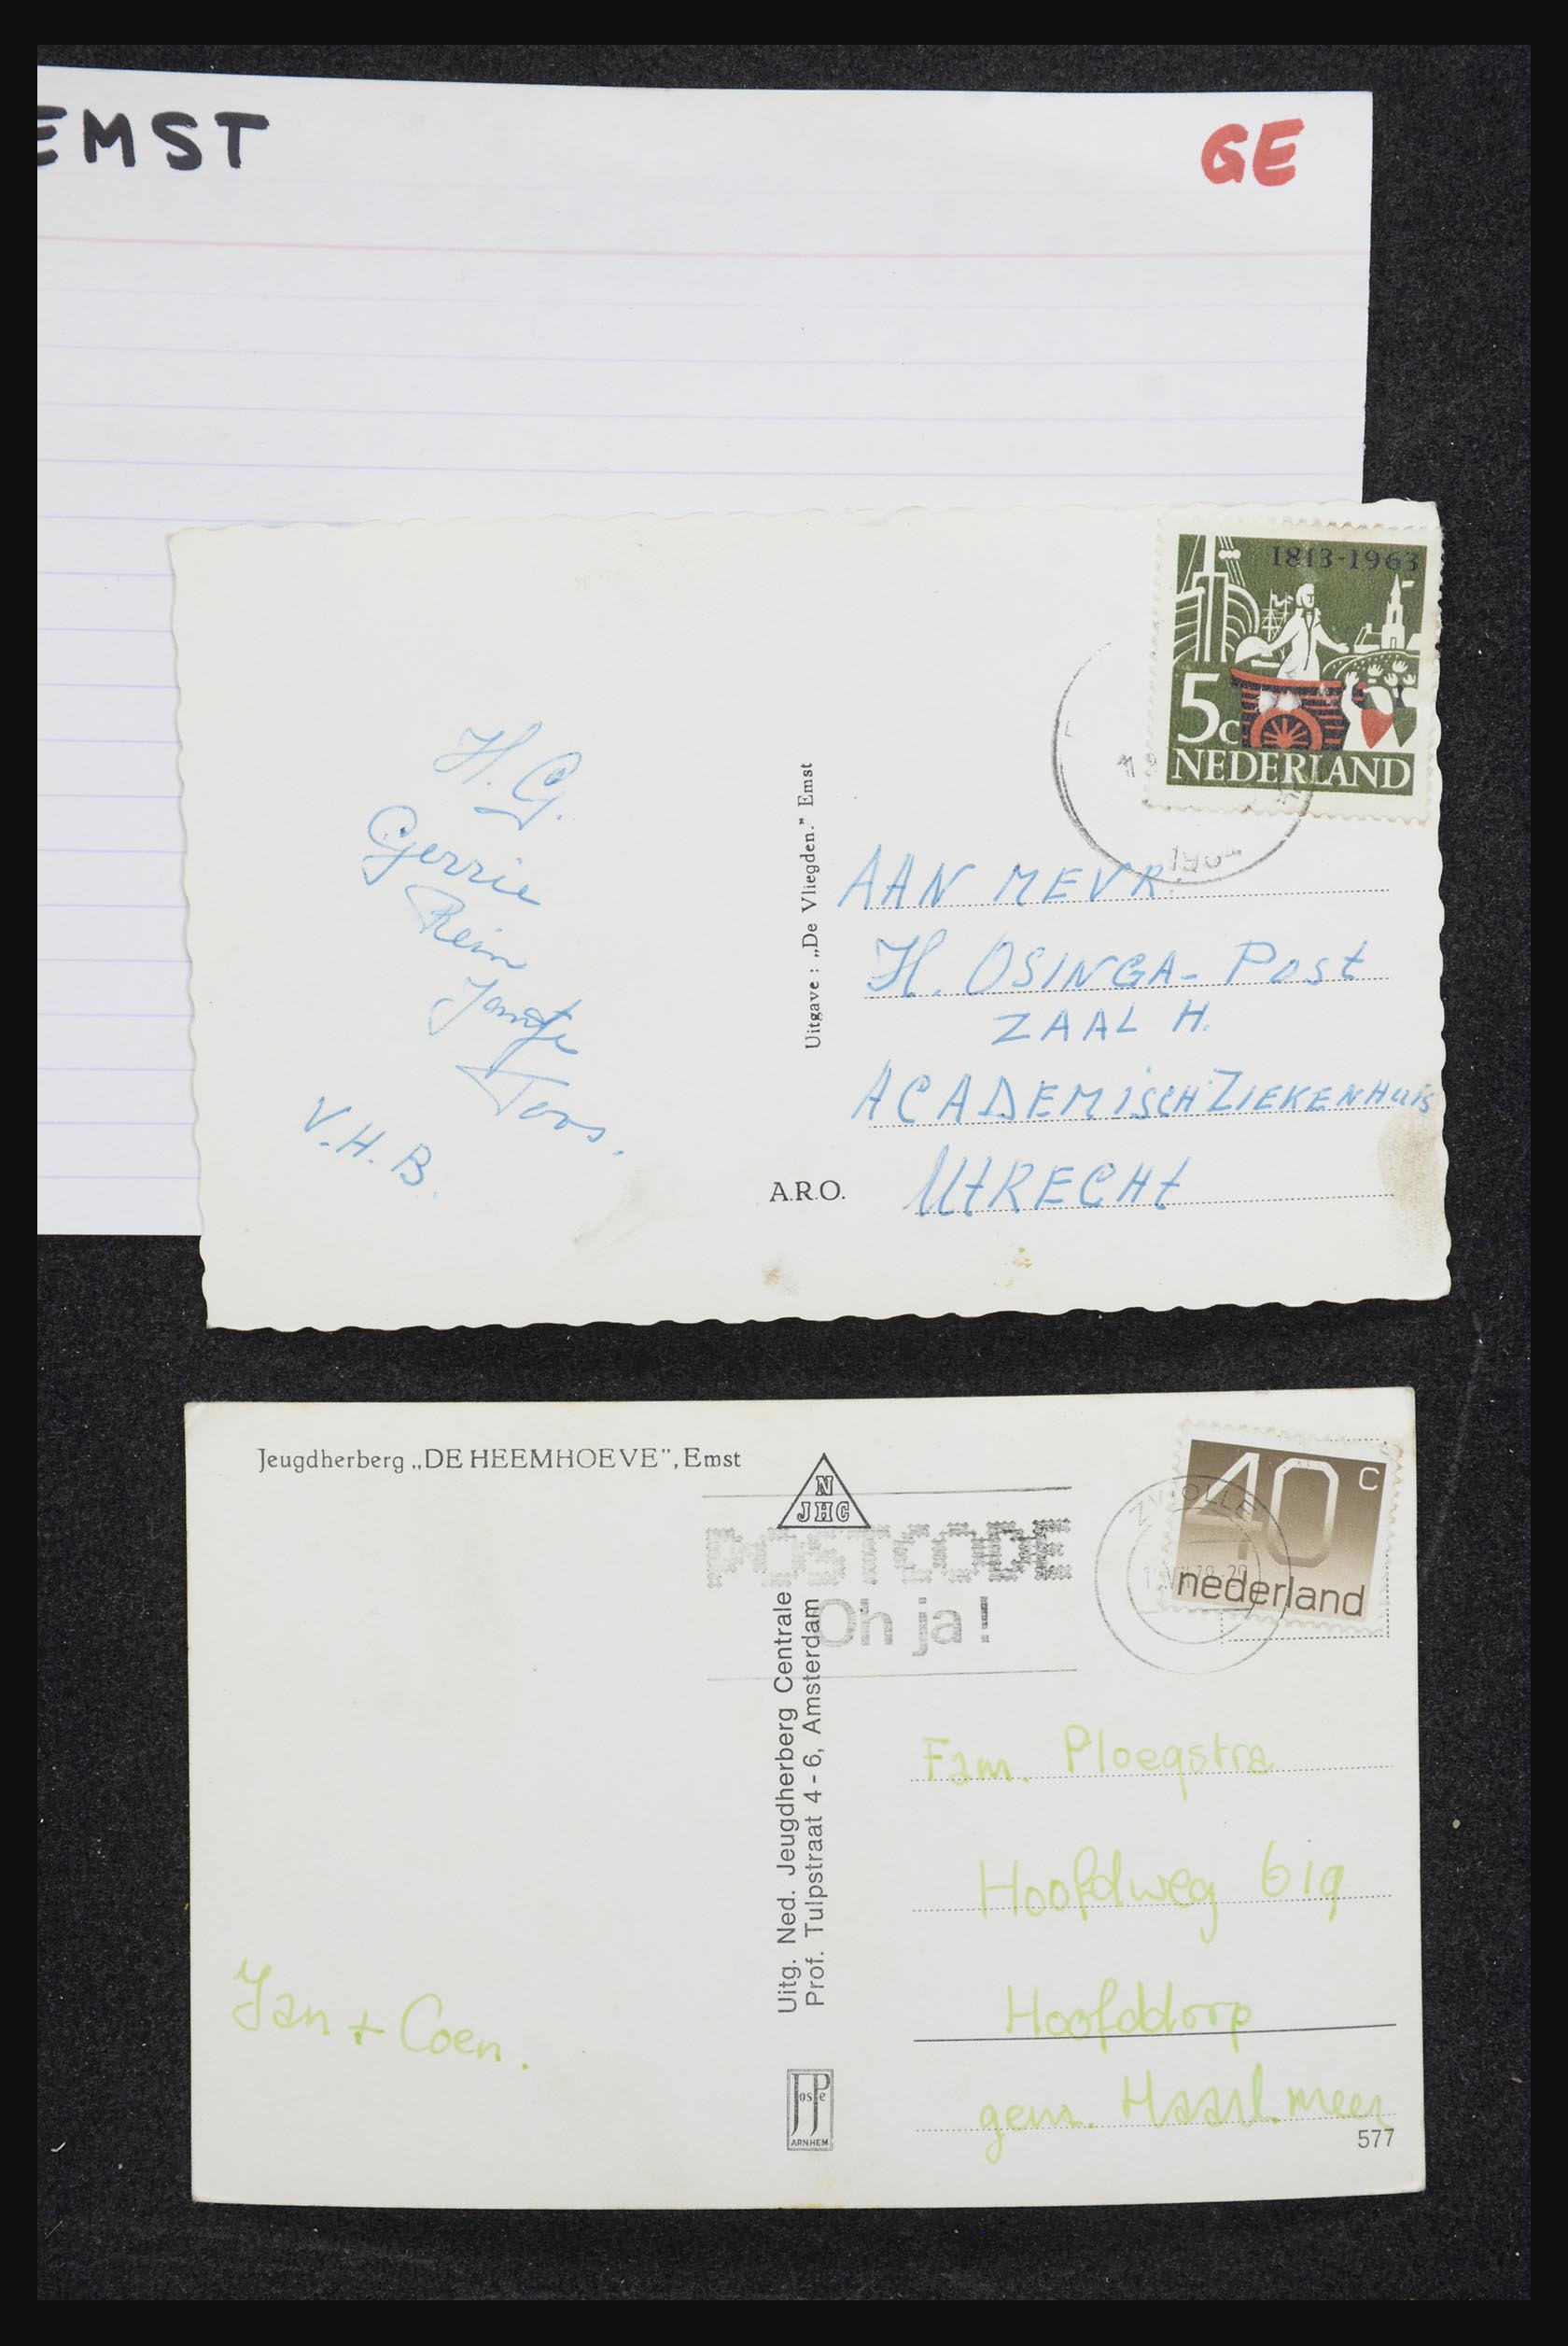 EMST
GE
1813-1963
5c
NEDERLAND
1964
H. G.
Gerrie
Rein
Jantje
Tons.
V.H.B.
Uitgave: „De Vliegden.” Emst
A.R.O.
AAN MEVR.
H. OSINGA-Post
ZAAL H.
ACADEMISCH ZIEKENHUIS
UtRECHt
Jeugdherberg „DE HEEMHOEVE”, Emst
N
JHC
POSTCODE
Oh ja!
ZWOLLE
40c
nederland
Uitg. Ned. Jeugdherberg Centrale
Prof. Tulpstraat 4-6, Amsterdam
Fam. Ploegstra
Hoofdweg 619
Hoofddorp
gem. Haarl.meer
577
Jan + Coen.
JosPe
ARNHEM